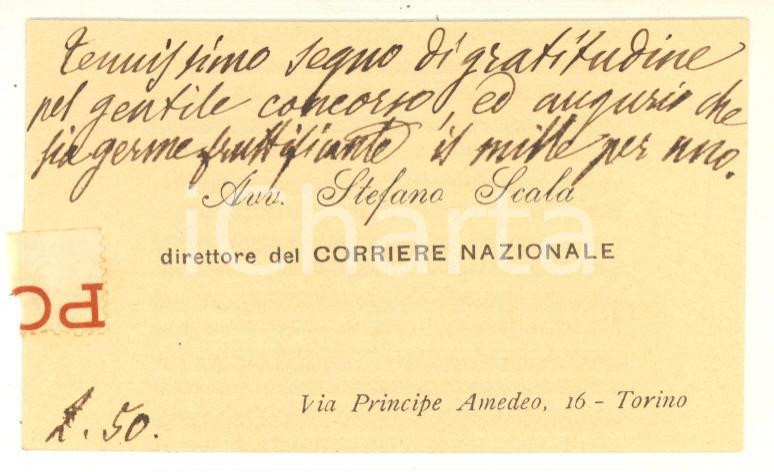 tenuissimo segno di gratitudine
pel gentile concorso, ed augurio che
sia germe fruttificante il mille per uno.
Avv. Stefano Scala
direttore del CORRIERE NAZIONALE
iCharta
PO
Via Principe Amedeo, 16 - Torino
L. 50.